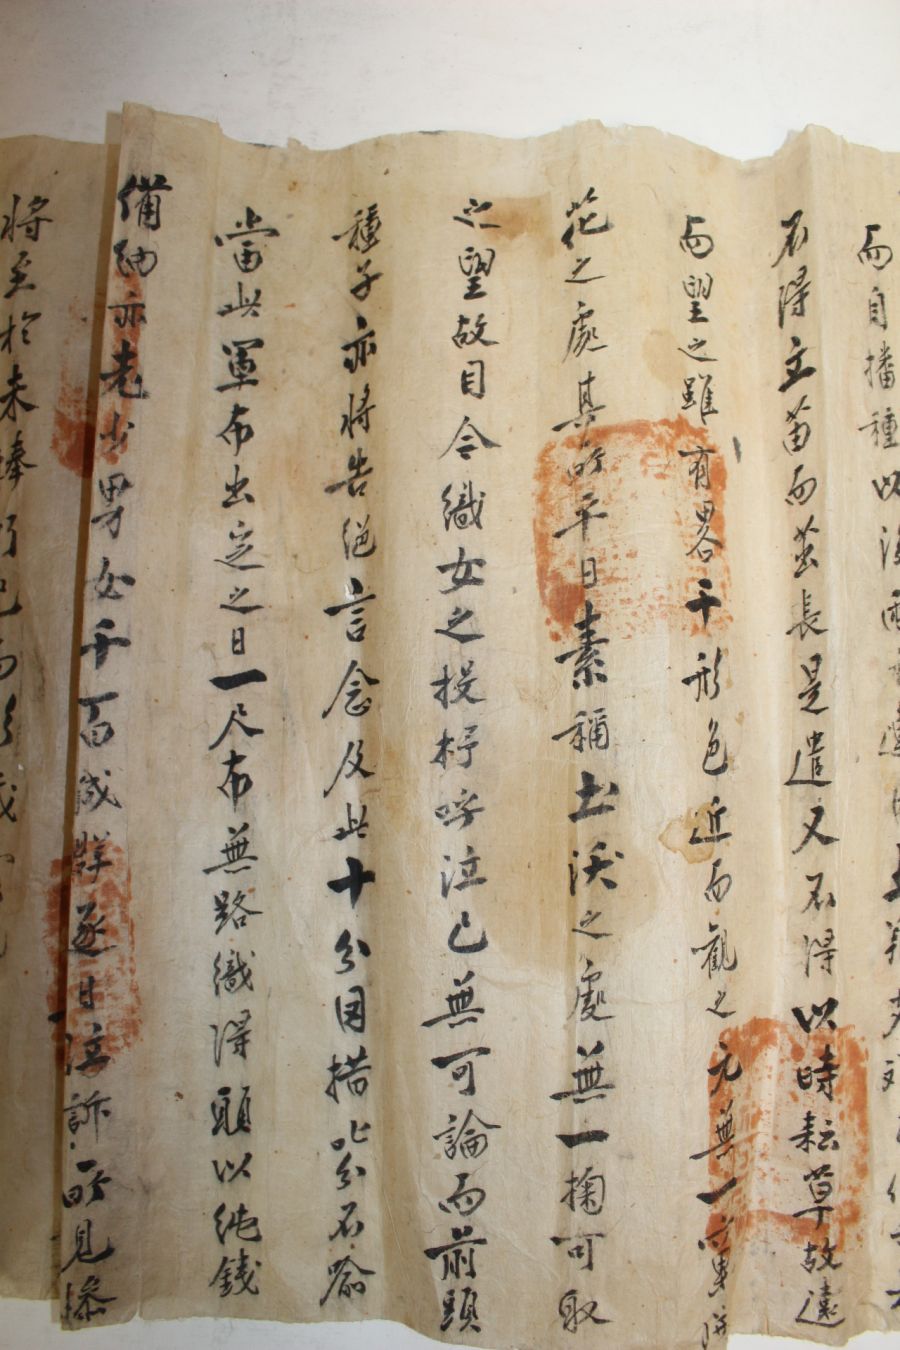 而自播種以後雨
不得立苗而茁長是遣又不得以時耘草故遠
而望之雖有畧干形色近而觀之元無一
花之處其所平日素稱土沃之處無一掬可取
之望故目今織女之投杼呼泣已無可論而前頭
種子亦將告絕言念及此十分罔措叱分不喻
當此軍布出定之日一尺布無路織得頭以純錢
備納亦老少男女千百成群逐日泣訴所見慘
將至於未